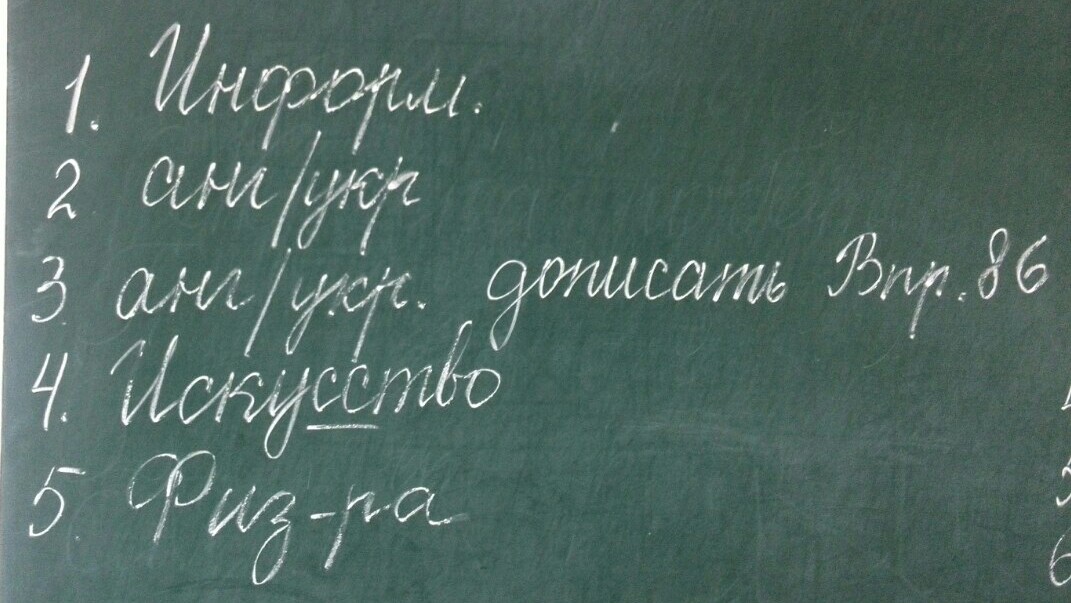 1. Информ.
2 анг/укр
3. анг/укр. дописать Впр. 86
4. Искусство
5. Физ-ра